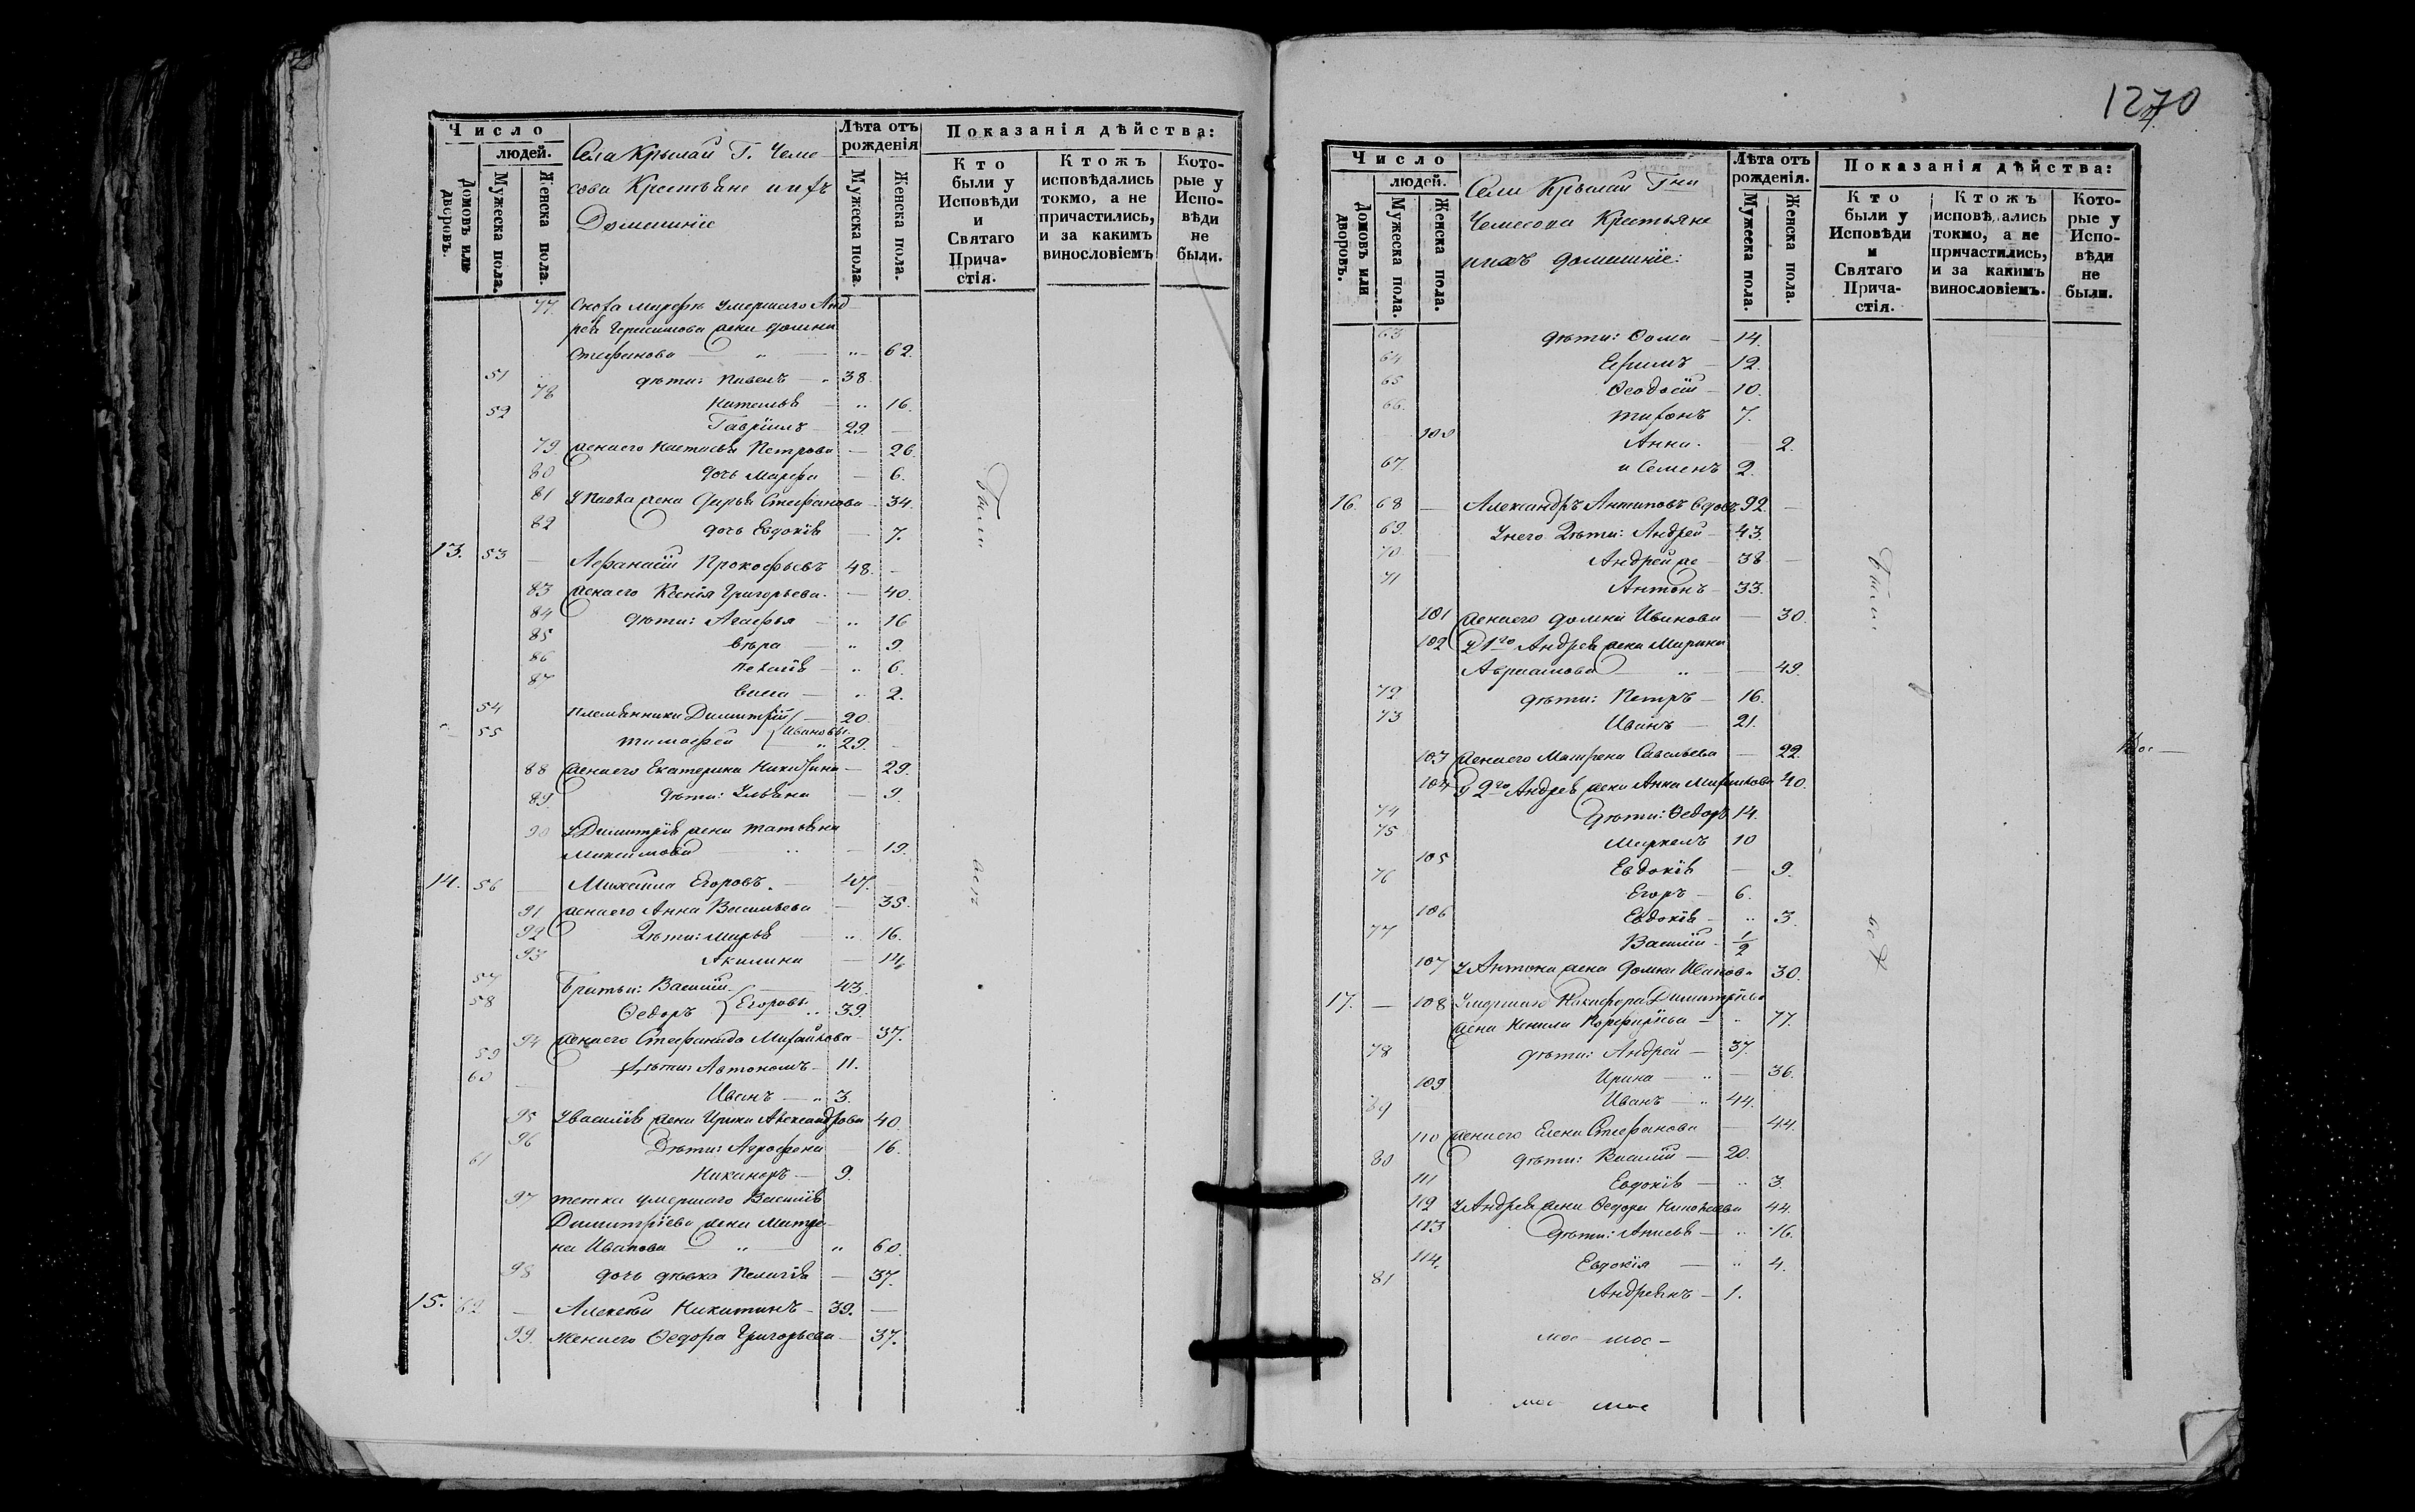 Число
людей.
Домовъ или дворовъ.
Мужеска пола.
Женска пола.
Села Крымай Г. Чеме
сова Крестьяне и ихъ
Домашніе
Лѣта отъ рожденія
Мужеска пола.
Женска пола.
Показанія дѣйства:
Кто были у Исповѣди и Святаго Прича-стія.
Ктожъ исповѣдались токмо, а не причастились, и за какимъ винословіемъ
Кото-рые у Испо-вѣди не были.
77. умершаго Анд
рея Герасимова жена домна
Стефанова — " — "— 62.
51 дѣти: Павелъ — " 38.
78 Наталья — " 16.
52 Гавріилъ — 29. —
79. жена его Настасья Петрова — 26.
80 дочь Марфа — 6.
81 У Павла жена Дарья Стефанова — 34.
82 дочь Евдокія — 7.
13. 53 — Афанасій Прокофьевъ 48. —
83 жена его Ксенія Григорьева. — 40.
84 дѣти: Агафья — " 16
85 вѣра — " 9
86 Пелагія — " 6.
87 — " 2.
54 племянники Димитрій — 20.
55 тимофей } Ивановы " 29. —
88 жена его Екатерина Никитина — 29.
89. дѣти: Ульяна — 9.
90 У Димитрія жена татьяна
Максимова " — 19.
14. 56 — Михаила Егоровъ. — 47. —
91 жена его Анна Васильева — 35.
92 Дѣти: Марья — " 16.
93 Акилина — 14
57 Братья: Василій — 43.
58 Ѳедоръ } Егоровы " 39.
94 жена его Стефанида Михайлова — 37.
59 дѣти: Автономъ — 11.
60 — Иванъ — " 3.
95 У василія жена Ирина Александрова 40.
96 Дѣти: Агрофена — 16.
61 Никаноръ — 9.
97 тетка умершаго Василія
Димитріева жена Матре-
на Иванова — " — " 60.
98 дочь дѣвка Пелагія — 37.
15. 62 — Алексѣй Никитинъ — 39. —
99. Жена его Ѳедора Григорьева — 37.
Были
всѣ
1270
Число
людей.
Домовъ или дворовъ.
Мужеска пола.
Женска пола.
Села Крымай Гна
Чемесова Крестьяне
и ихъ домашніе:
Лѣта отъ рожденія.
Мужеска пола.
Женска пола.
Показанія дѣйства:
Кто были у Исповѣди и Святаго Прича-стія.
Ктожъ исповѣ ались токмо, а не причастились, и за какимъ винословіемъ.
Кото-рые у Испо-вѣди не были.
63 дѣти: Ѳома — 14.
64 Ефимъ — 12.
65 Ѳеодосій — 10.
66. 7.
100 Анна. — 2.
67. и Семенъ 2.
16. 68 — Александръ Антиповъ вдовъ 92. —
69. У него Дѣти: Андрей — 43.
70 — Андрей же — 38 —
71 Антонъ — 33.
101 жена его домна Иванова — 30.
102 У 1го Андрея жена Марина
Авраамова — " — 49.
72 дѣти: Петръ — 16.
73 Иванъ — 21.
103 жена его Матрена Савельева — 22.
104 У 2го Андрея жена Анна Михайлова 40.
74 Дѣти: Ѳедоръ 14.
75 Маркелъ 10
105 Евдокія — 9.
76 Егоръ — 6.
106 Евдокія — " 3.
77 Василій — 1/2
107 У Антона жена Домна Иванова 30.
17. — 108 Никифора Димитріева
жена Порфирьева — " 77.
78 дѣти: Андрей — 37.
109 Ирина — " — 36.
79 Иванъ — " 44.
110 жена его Елена Стефанова — 44.
80 дѣти: Василій — 20.
111 Евдокія — " 3.
112 У Андрея жена Ѳедора Николаева 44.
113 дѣти: Анисья — " 16.
114. Евдокія — " 4.
81 Андреянъ — 1.
Были
всѣ